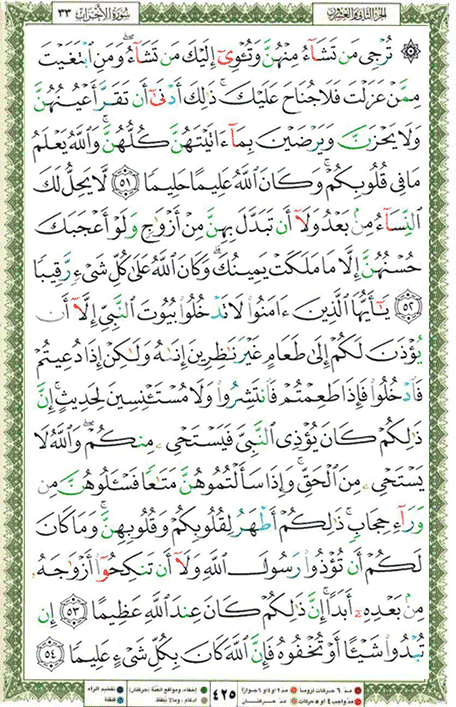 سُورَةُ الأَحْزَابِ ٣٣
الجزء الثاني والعشرون
۞ تُرْجِي مَن تَشَآءُ مِنْهُنَّ وَتُـْٔوِيٓ إِلَيْكَ مَن تَشَآءُۖ وَمَنِ ٱبْتَغَيْتَ
مِمَّنْ عَزَلْتَ فَلَا جُنَاحَ عَلَيْكَۚ ذَٰلِكَ أَدْنَىٰٓ أَن تَقَرَّ أَعْيُنُهُنَّ
وَلَا يَحْزَنَّ وَيَرْضَيْنَ بِمَآ ءَاتَيْتَهُنَّ كُلُّهُنَّۚ وَٱللَّهُ يَعْلَمُ
مَا فِي قُلُوبِكُمْۚ وَكَانَ ٱللَّهُ عَلِيمًا حَلِيمًا ٥١ لَّا يَحِلُّ لَكَ
ٱلنِّسَآءُ مِنۢ بَعْدُ وَلَآ أَن تَبَدَّلَ بِهِنَّ مِنْ أَزْوَٰجٍ وَلَوْ أَعْجَبَكَ
حُسْنُهُنَّ إِلَّا مَا مَلَكَتْ يَمِينُكَۗ وَكَانَ ٱللَّهُ عَلَىٰ كُلِّ شَيْءٍ رَّقِيبًا
٥٢ يَٰٓأَيُّهَا ٱلَّذِينَ ءَامَنُوا۟ لَا تَدْخُلُوا۟ بُيُوتَ ٱلنَّبِيِّ إِلَّآ أَن
يُؤْذَنَ لَكُمْ إِلَىٰ طَعَامٍ غَيْرَ نَٰظِرِينَ إِنَىٰهُ وَلَٰكِنْ إِذَا دُعِيتُمْ
فَٱدْخُلُوا۟ فَإِذَا طَعِمْتُمْ فَٱنتَشِرُوا۟ وَلَا مُسْتَـْٔنِسِينَ لِحَدِيثٍۚ إِنَّ
ذَٰلِكُمْ كَانَ يُؤْذِي ٱلنَّبِيَّ فَيَسْتَحْيِۦ مِنكُمْۖ وَٱللَّهُ لَا
يَسْتَحْيِۦ مِنَ ٱلْحَقِّۚ وَإِذَا سَأَلْتُمُوهُنَّ مَتَٰعًا فَسْـَٔلُوهُنَّ مِن
وَرَآءِ حِجَابٍۚ ذَٰلِكُمْ أَطْهَرُ لِقُلُوبِكُمْ وَقُلُوبِهِنَّۚ وَمَا كَانَ
لَكُمْ أَن تُؤْذُوا۟ رَسُولَ ٱللَّهِ وَلَآ أَن تَنكِحُوٓا۟ أَزْوَٰجَهُۥ
مِنۢ بَعْدِهِۦٓ أَبَدًاۚ إِنَّ ذَٰلِكُمْ كَانَ عِندَ ٱللَّهِ عَظِيمًا ٥٣ إِن
تُبْدُوا۟ شَيْـًٔا أَوْ تُخْفُوهُ فَإِنَّ ٱللَّهَ كَانَ بِكُلِّ شَيْءٍ عَلِيمًا ٥٤
مدّ ٦ حركات لزوماً مدّ ٢ أو ٤ أو ٦ جوازاً
مدّ واجب ٤ أو ٥ حركات مدّ حركتان
٤٢٥
إخفاء، ومواقع الغنّة (حركتان) تفخيم الراء
إدغام، وما لا يلفظ قلقلة